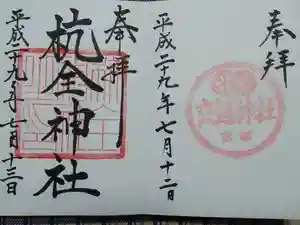 奉拝
平成二十九年七月十二日
奉拝
杭全神社
平成二十九年七月十三日